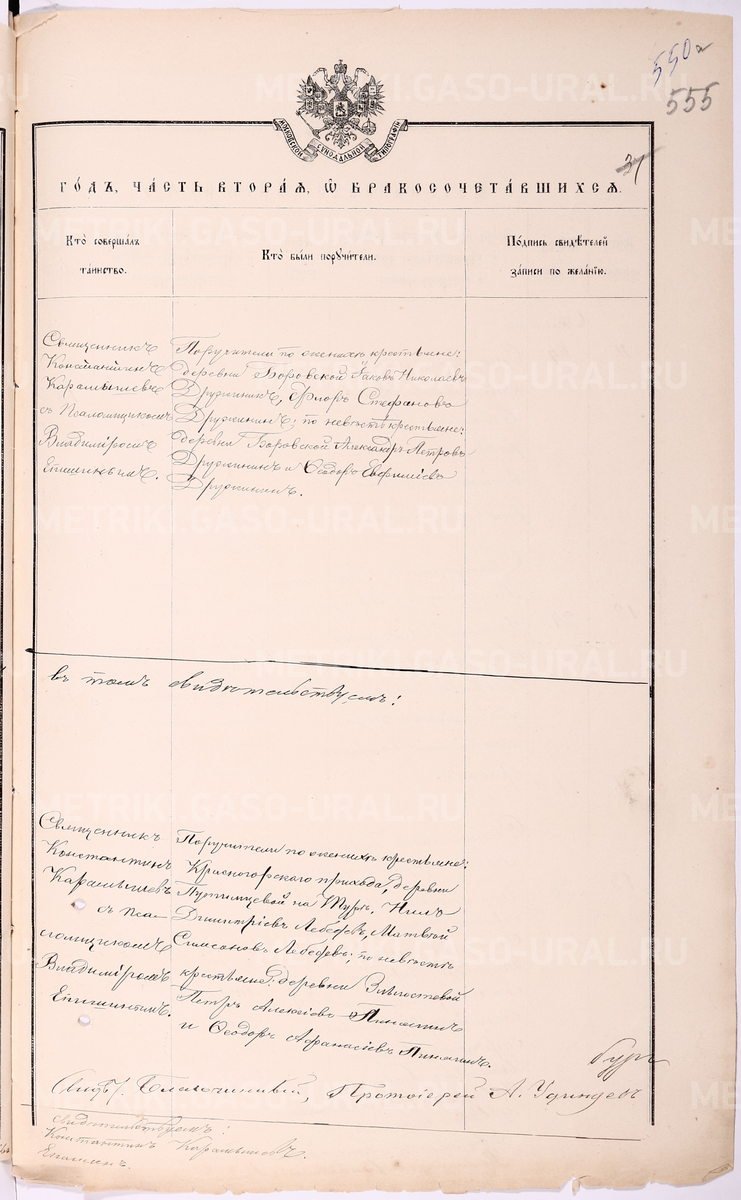 550а
555
31
МОСКОВСКОЙ СѴНОДАЛЬНОЙ ТИПОГРАФІИ
ГО́ДЪ, ЧА́СТЬ ВТОРА́Я, Ѽ БРАКОСОЧЕТА́ВШИХСЯ.
Кто̀ соверша́лъ таинство.
Кто̀ бы́ли порꙋчи́тели.
По́дпись свидѣ́телей за́писи по жела́нїю.
Священникъ
Константинъ
Карамышевъ
съ Псаломщикомъ
Владиміромъ
Епишинымъ.
Поручители по женихѣ крестьяне:
деревни Боровской Яковъ Николаевъ
Дружининъ, Егоръ Стефановъ
Дружининъ; по невѣстѣ крестьяне:
деревни Боровской Александръ Петровъ
Дружининъ и Ѳеодоръ Евфиміевъ
Дружининъ.
въ томъ свидѣтельствуемъ:
Священникъ
Константинъ
Карамышевъ
съ Пса-
ломщикомъ
Владиміромъ
Епишинымъ.
Поручители по женихѣ крестьяне:
Красногорскаго прихода, деревни
на Турѣ, Нилъ
Димитріевъ Лебедевъ, Матвѣй
Симеоновъ Лебедевъ; по невѣстѣ
крестьяне: деревни
Петръ Алексіевъ Пинягинъ
и Ѳеодоръ Афанасіевъ Пинягинъ.
Благочинный, Протоіерей А. Удинцевъ
свидѣтельствуемъ:
Константинъ Карамышевъ.
Епишинъ.
METRIKI.GASO-URAL.RU